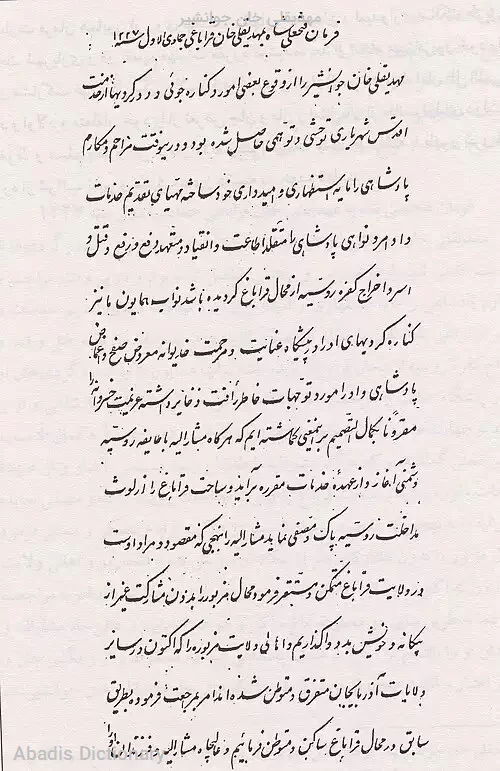 فرمان فتحعلی شاه بمهدیقلی خان قراباغی جمادی الاول سنه ۱۲۲۷
مهدیقلی خان جوانشیر را از وقوع بعضی امور و کناره جوئی و دردکردیها از خدمت
اقدس شهریاری توحشی و توهمی حاصل شده بود و درینوقت مراحم و مکارم
پادشاهی را مایه استظهاری و امیدواری خود ساخته مهیای تقدیم خدمات
و اوامر و نواهی پادشاهی را متقلد اطاعت و انقیاد و متعهد دفع و رفع و قتل و
اسر و اخراج کفره روسیه از محال قراباغ گردیده باشد نواب همایون ما نیز
کناره کردیهای او را در پیشگاه عنایت و مرحمت خدیوانه معروض صفح و اغماض
پادشاهی و او را مورد توجهات خاطر رأفت ذخایر داشته عزیمت خسروانه را
مقرونا بکمال التصمیم بر اینمعنی گماشته ایم که هرگاه مشارالیه با طایفه روسیه
دشمنی آغاز و از عهدهٔ خدمات مقرره برآید و ساحت قراباغ را از لوث
مداخلت روسیه پاک و مصفی نماید مشارالیه را بنهجی که مقصود و مراد اوست
در ولایت قراباغ متمکن و مستقر فرمود و محال مزبور را بدون مشارکت غیر از
بیگانه و خویش بدو واگذاریم و اهالی ولایت مزبوره را که اکنون در سایر
ولایات آذربایجان متفرق و متوطن شده اند امر بمراجعت فرموده بطریق
سابق در محال قراباغ ساکن و متوطن فرمائیم و عالیجاه مشارالیه
Abadis Dictionary